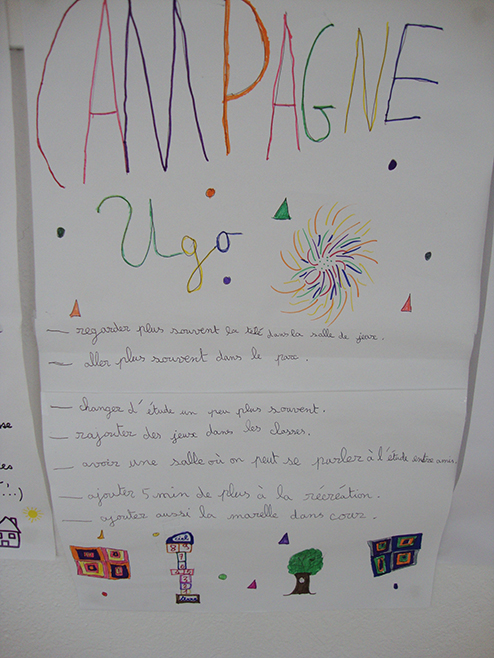 CAMPAGNE
Ugo
— regarder plus souvent la télé dans la salle de jeux.
— aller plus souvent dans le parc.
— changer d'étude un peu plus souvent.
— rajouter des jeux dans les classes.
— avoir une salle où on peut se parler à l'étude entre amis.
— ajouter 5 min de plus à la récréation.
— ajouter aussi la marelle dans cour.